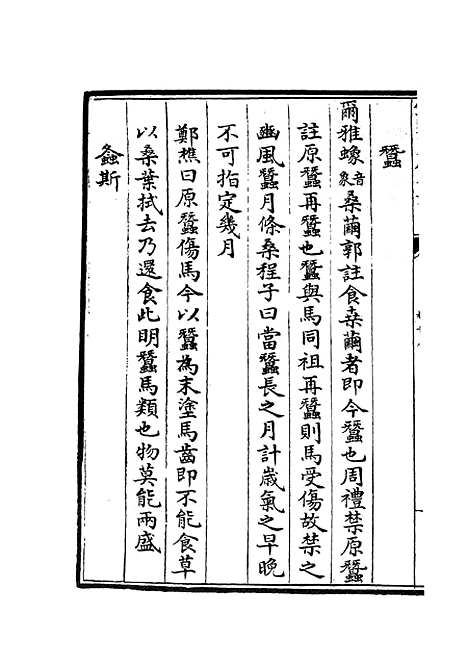 蠶
爾雅蟓音象桑繭郭註食桑繭者即今蠶也周禮禁原蠶
註原蠶再蠶也蠶與馬同祖再蠶則馬受傷故禁之
豳風蠶月條桑程子曰當蠶長之月計嵗氣之早晚
不可指定幾月
鄭樵曰原蠶傷馬今以蠶為末塗馬齒即不能食草
以桑葉拭去乃還食此明蠶馬類也物莫能兩盛
螽斯